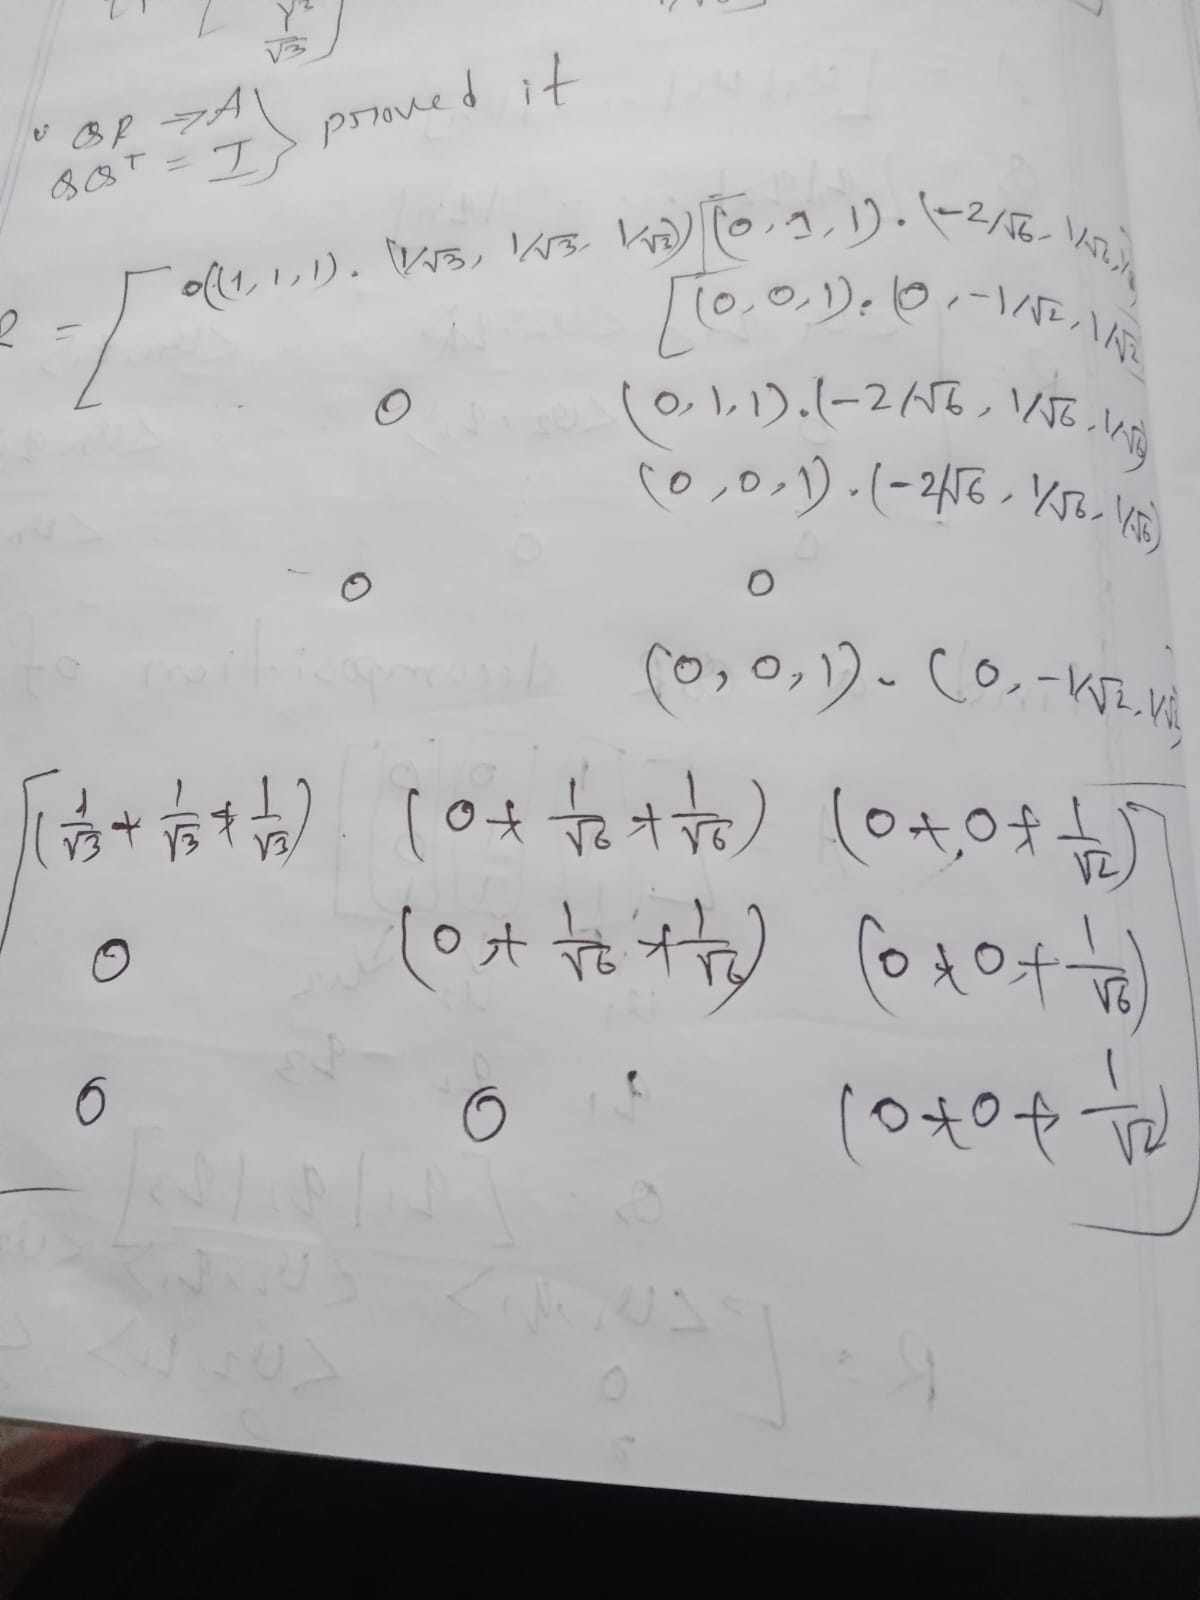 √3
QR ⇒ A
QQᵀ = I } proved it
R = [ ((1, 1, 1) . (1/√3, 1/√3, 1/√3)) [(0, 1, 1) . (-2/√6, 1/√6,
[(0, 0, 1) . (0, -1/√2, 1/√2
0 (0, 1, 1) . (-2/√6, 1/√6, 1/√6)
(0, 0, 1) . (-2/√6, 1/√6, 1/√6)
0 0
(0, 0, 1) . (0, -1/√2, 1/√2)
[ (1/√3 + 1/√3 + 1/√3) (0 + 1/√6 + 1/√6) (0 + 0 + 1/√2)
0 (0 + 1/√6 + 1/√6) (0 + 0 + 1/√6)
0 0 (0 + 0 + 1/√2) ]